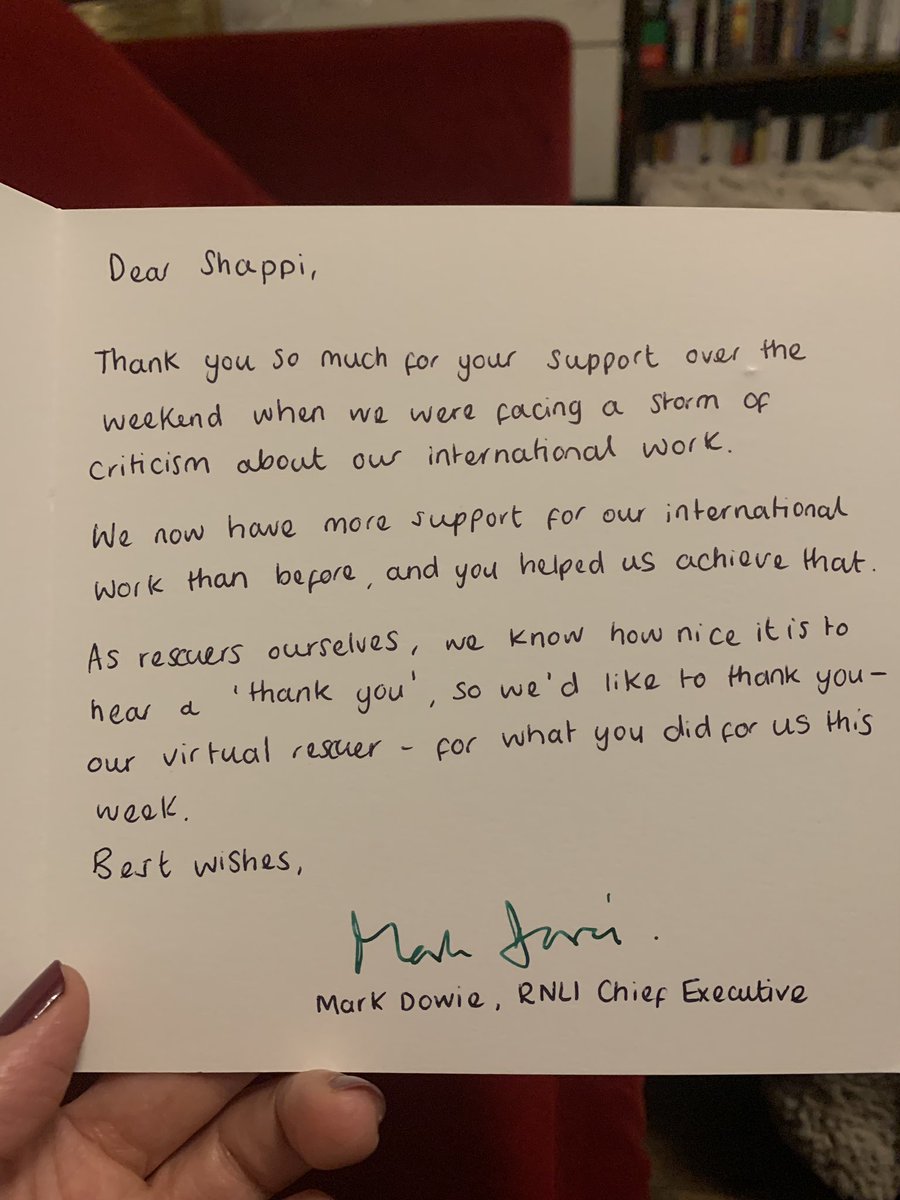 Dear Shappi,
Thank you so much for your support over the
weekend when we were facing a storm of
criticism about our international work.
We now have more support for our international
work than before, and you helped us achieve that.
As rescuers ourselves, we know how nice it is to
hear a 'thank you', so we'd like to thank you-
our virtual rescuer - for what you did for us this
week.
Best wishes,
Mark Dowie.
Mark Dowie, RNLI Chief Executive